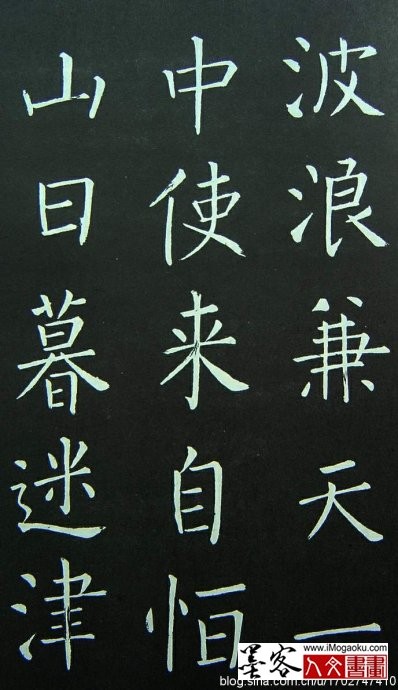 波浪兼天一
中使来自恒
山日暮迷津
墨客
www.iMogaoku.com
人文書畫
blog.sina.com.cn/u/1702747410